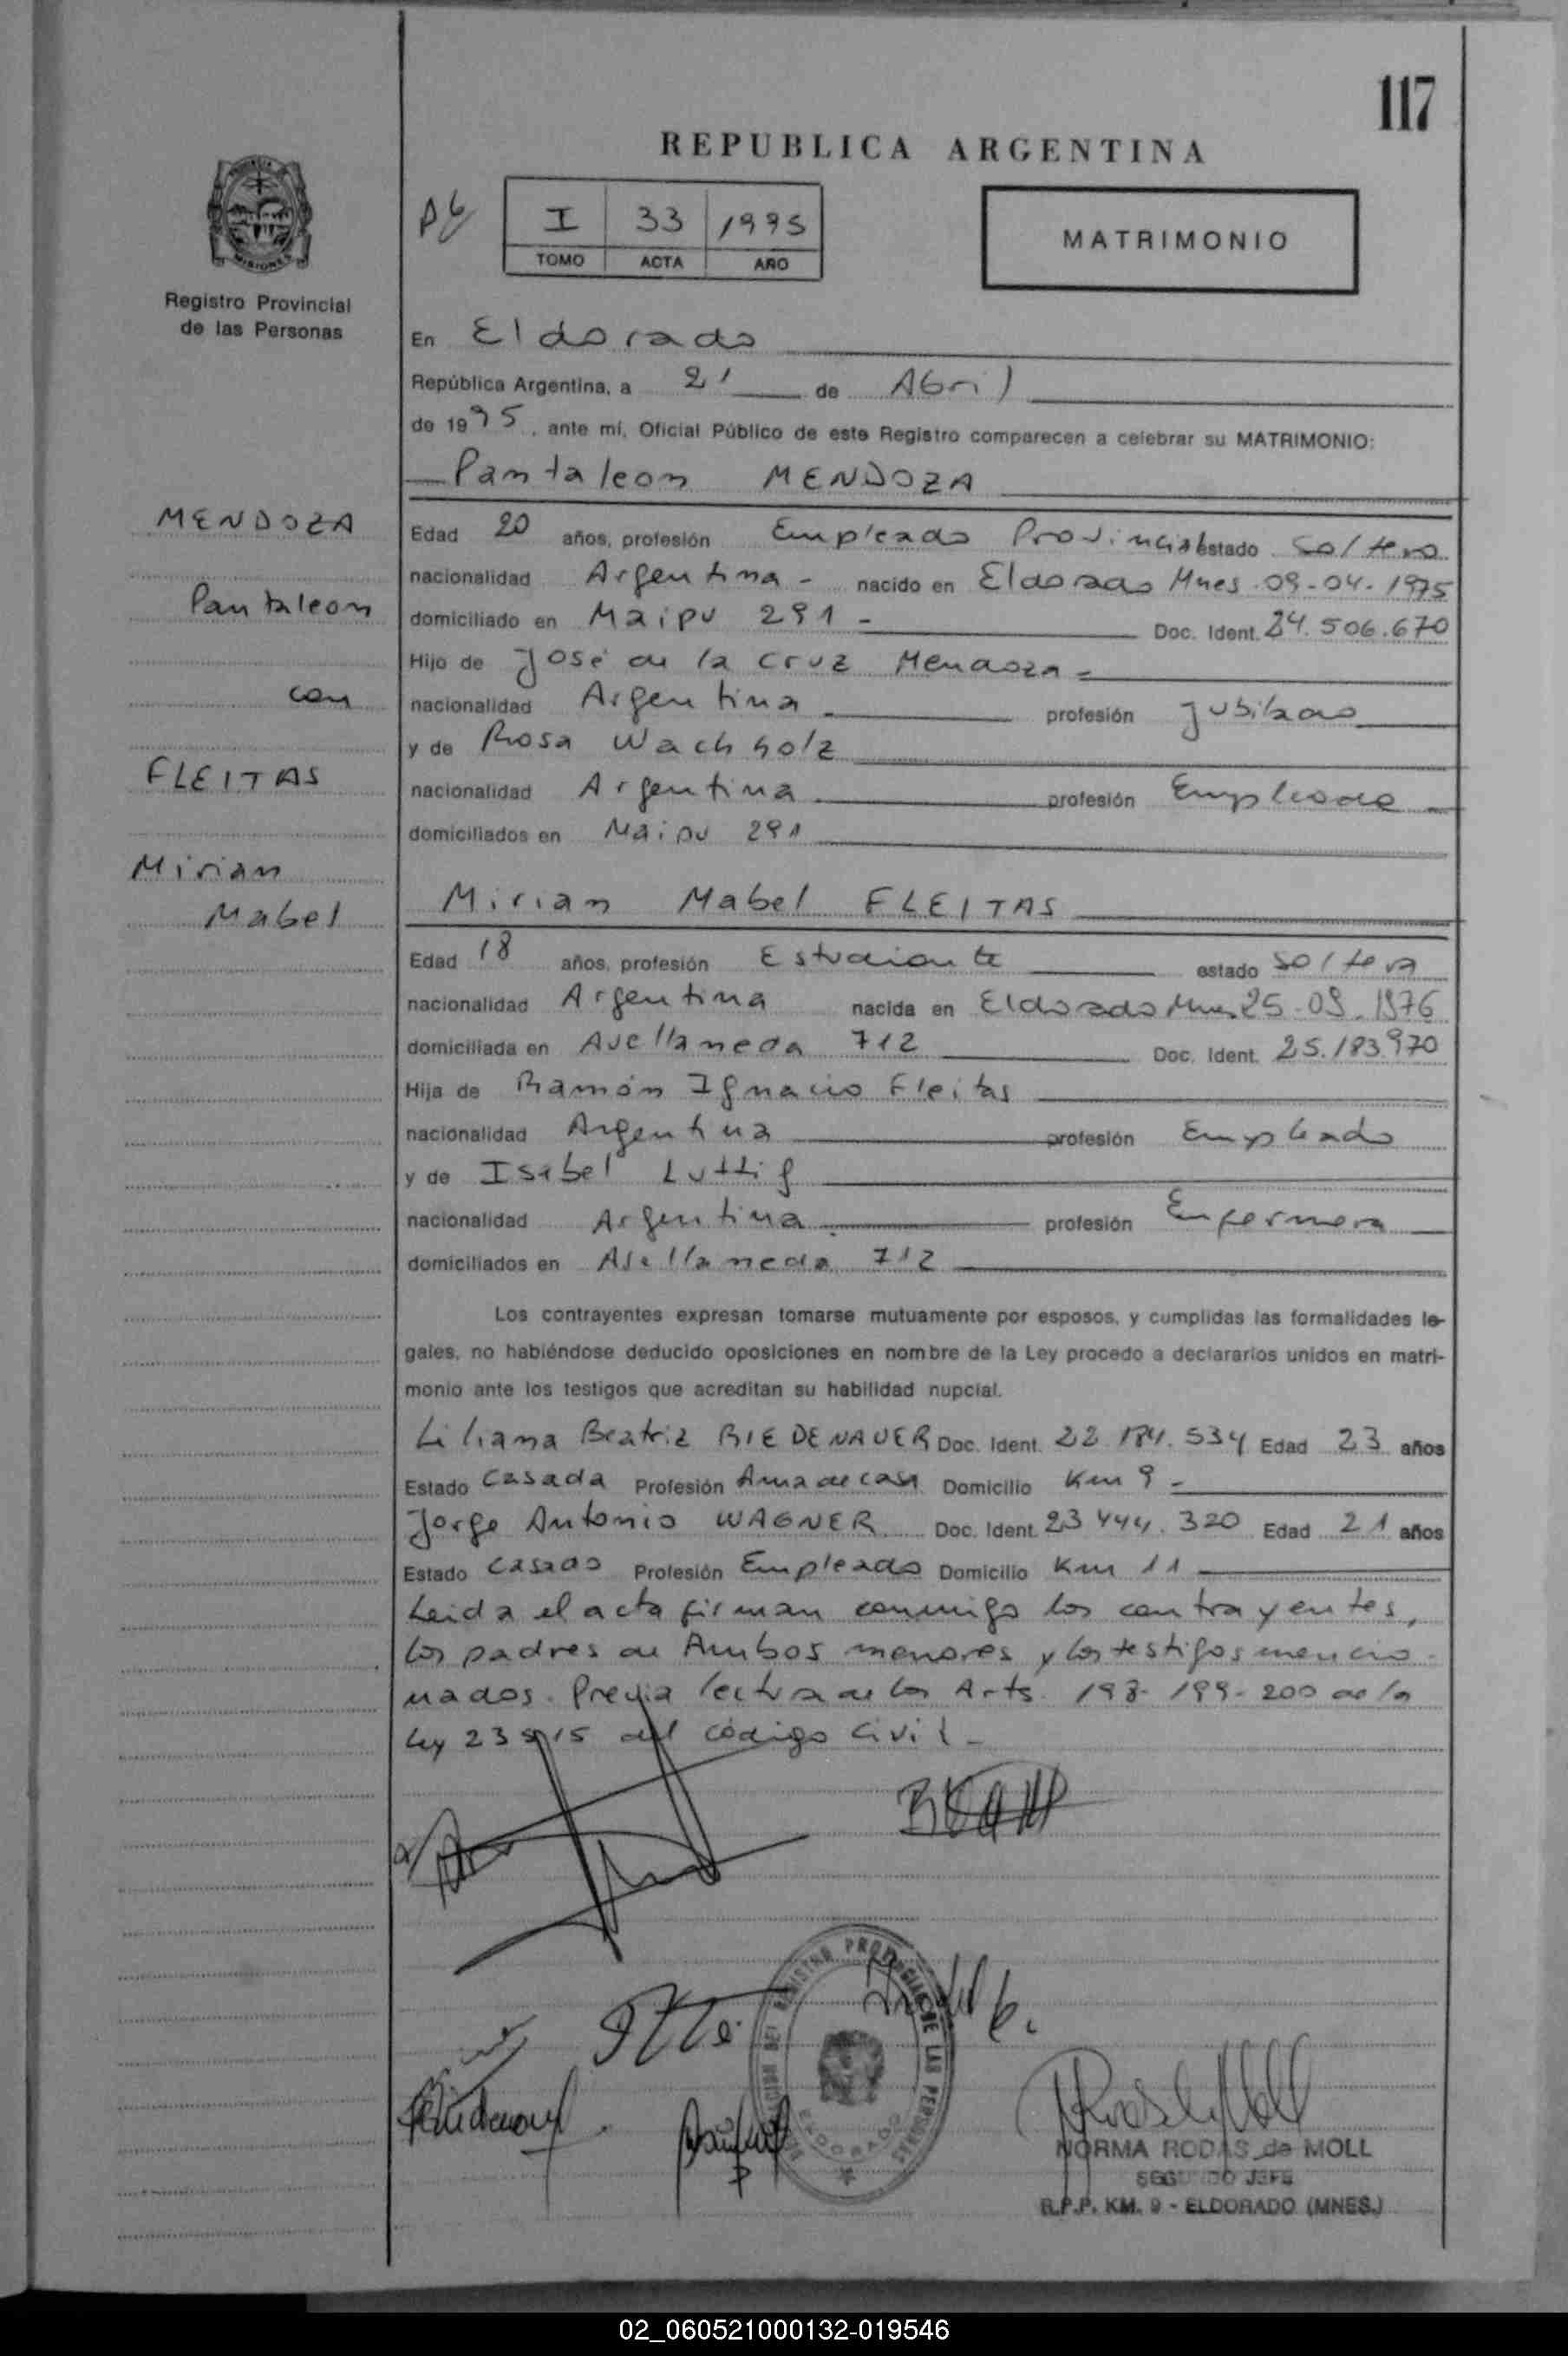 117
REPUBLICA ARGENTINA
I 33 1995
TOMO ACTA AÑO
MATRIMONIO
MISIONES
Registro Provincial
de las Personas
En Eldorado
República Argentina, a 21 de Abril
de 1995, ante mí, Oficial Público de este Registro comparecen a celebrar su MATRIMONIO:
Pantaleon MENDOZA
MENDOZA
Pantaleon
con
FLEITAS
Mirian
Mabel
Edad 20 años, profesión Empleado Provincial estado soltero
nacionalidad Argentina - nacido en Eldorado Mnes 09-04-1975
domiciliado en Maipu 291 - Doc. Ident. 24.506.670
Hijo de José de la Cruz Mendoza =
nacionalidad Argentina profesión jubilado
y de Rosa Wachholz
nacionalidad Argentina profesión Empleada
domiciliados en Maipu 291
Mirian Mabel FLEITAS
Edad 18 años, profesión Estudiante estado soltera
nacionalidad Argentina nacida en Eldorado Mnes 25-09-1976
domiciliada en Avellaneda 712 Doc. Ident. 25.183.970
Hija de Ramón Ignacio Fleitas
nacionalidad Argentina profesión Empleado
y de Isabel Luttig
nacionalidad Argentina profesión Enfermera
domiciliados en Avellaneda 712
Los contrayentes expresan tomarse mutuamente por esposos, y cumplidas las formalidades le-
gales, no habiéndose deducido oposiciones en nombre de la Ley procedo a declararlos unidos en matri-
monio ante los testigos que acreditan su habilidad nupcial.
Liliana Beatriz BIEDENAUER Doc. Ident. 22.184.534 Edad 23 años
Estado Casada Profesión Ama de casa Domicilio Km 9 -
Jorge Antonio WAGNER Doc. Ident. 23 444.320 Edad 21 años
Estado Casado Profesión Empleado Domicilio Km 11
Leida el acta firman conmigo los contrayentes,
los padres de Ambos menores y los testigos mencio-
nados. Previa lectura de los Arts. 198-199-200 de la
Ley 23515 del código Civil -
REGISTRO PROVINCIAL DE LAS PERSONAS
ELDORADO
NORMA RODAS de MOLL
SEGUNDO JEFE
R.P.P. KM. 9 - ELDORADO (MNES.)
02_060521000132-019546